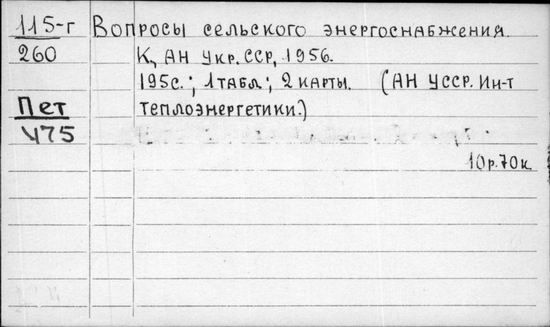 115-г Вопросы сельского энергоснабжения.
260 К, АН Укр. ССР, 1956.
195с.; 1 табл.; 2 карты. (АН УССР. Ин-т
Пет теплоэнергетики.)
Ч75
10р.70к.